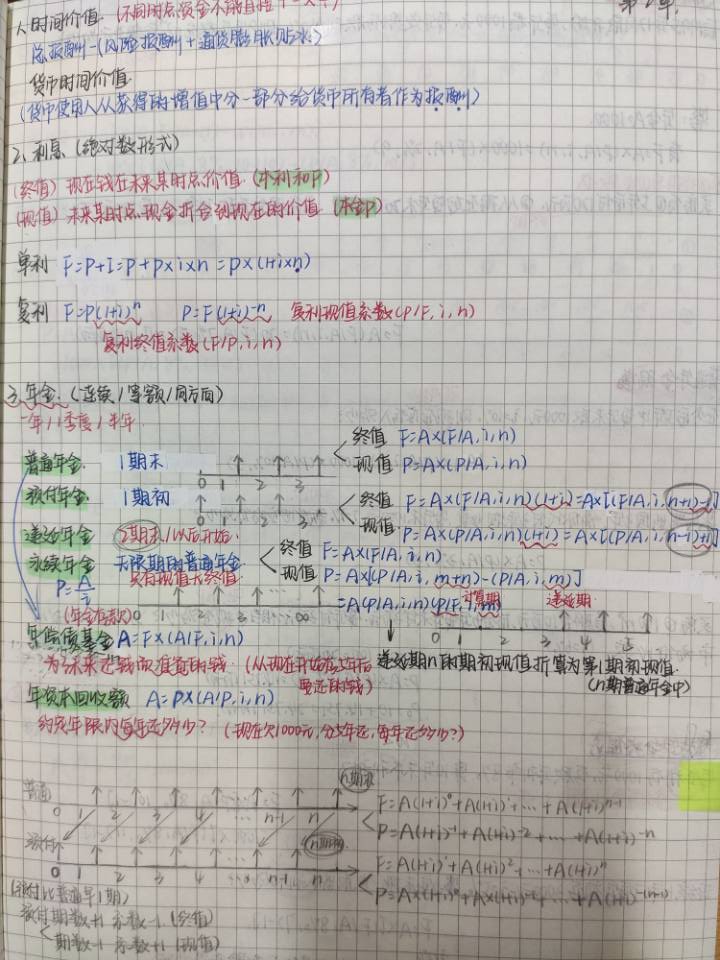 1、时间价值 (不同时点资金不能直接
第2章.
总报酬-(风险报酬+通货膨胀贴水)
货币时间价值
(货币使用人从获得的增值中分一部分给货币所有者作为报酬)
2、利息 (绝对数形式)
(终值) 现在钱在未来某时点价值 (本利和F)
(现值) 未来某时点现金折合到现在的价值 (本金P)
单利 F=P+I=P+P×i×n=P×(1+i×n)
复利 F=P(1+i)^n P=F(1+i)^-n 复利现值系数(P/F,i,n)
复利终值系数(F/P,i,n)
3、年金. (连续/等额/同方向)
一年/1季度/半年
普通年金 1期末
0 1 2 3
终值 F=A×(F/A,i,n)
现值 P=A×(P/A,i,n)
预付年金 1期初
终值 F=A×(F/A,i,n)(1+i)=A×[(F/A,i,n+1)-1]
现值 P=A×(P/A,i,n)(1+i)=A×[(P/A,i,n-1)+1]
递延年金 2期末/以后开始
终值 F=A×(F/A,i,n)
现值 P=A×[(P/A,i,m+n)-(P/A,i,m)]
=A(P/A,i,n)(P/F,i,m)
永续年金 无限期的普通年金
只有现值无终值
P=A/i
0 1 2 3 ∞
递延期
0 1 2 3 4 5
年偿债基金 A=F×(A/F,i,n)
为了未来还钱而准备的钱 (从现在开始存以后要还的钱)
递延期n的期初现值折算为第1期初现值
(n期普通年金中)
年资本回收额 A=P×(A/P,i,n)
约定年限内每年还多少? (现在欠1000元,分5年还,每年还多少?)
n期末
普通
0 1 2 3 4 ... n-1 n
F=A(1+i)^0+A(1+i)^1+...+A(1+i)^n-1
P=A(1+i)^-1+A(1+i)^-2+...+A(1+i)^-n
预付
n期初
0 1 2 3 4 ... n-1 n
F=A(1+i)^1+A(1+i)^2+...+A(1+i)^n
P=A×(1+i)^0+A×(1+i)^-1+...+A(1+i)^-(n-1)
(预付比普通早1期)
预付 期数+1 系数-1 (终值)
期数-1 系数+1 (现值)